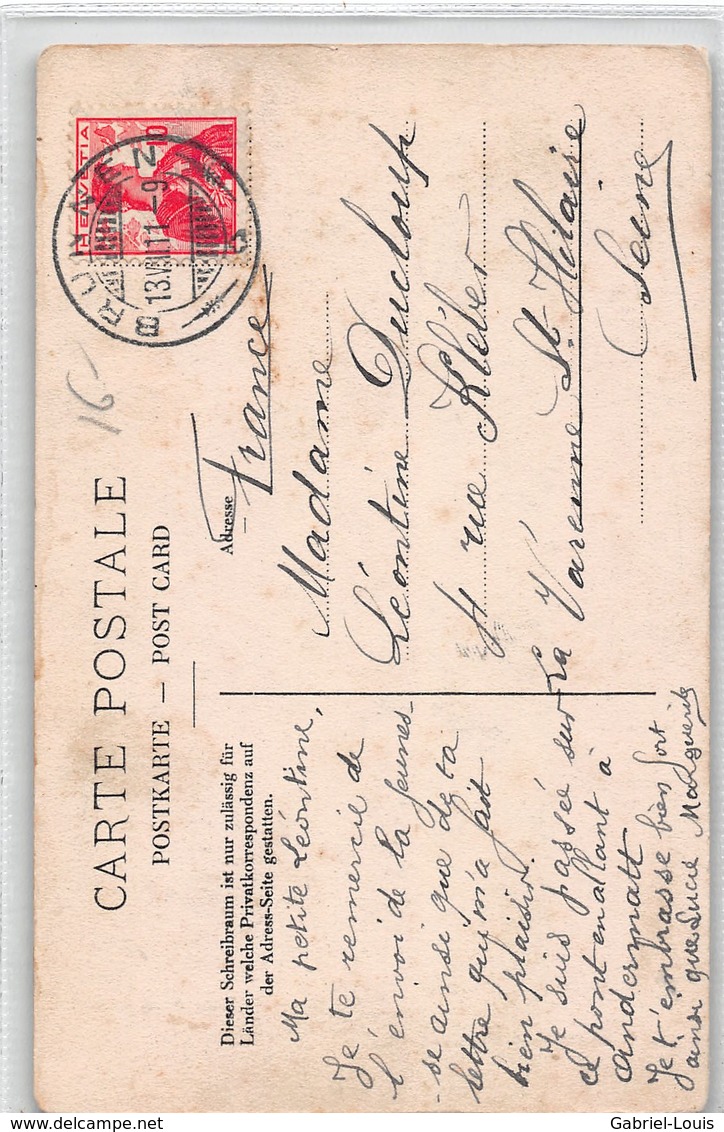 CARTE POSTALE
POSTKARTE — POST CARD
Dieser Schreibraum ist nur zulässig für
Länder welche Privatkorrespondenz auf
der Adress-Seite gestatten.
Ma petite Léontine,
Je te remercie de
l'envoi de la jeunes-
-se ainsi que de ta
lettre qui m'a fait
bien plaisir.
Je suis passée sur
ce pont en allant à
Andermatt
Je t'embrasse bien fort
ainsi que Lucie Marguerite
HELVETIA
10
BRUNNEN
13.VIII.11–9
16-
Adresse
France
Madame
Léontine Ducloup
4 rue Kléber
La Varenne St. Hilaire
Seine
delcampe.net
Gabriel-Louis